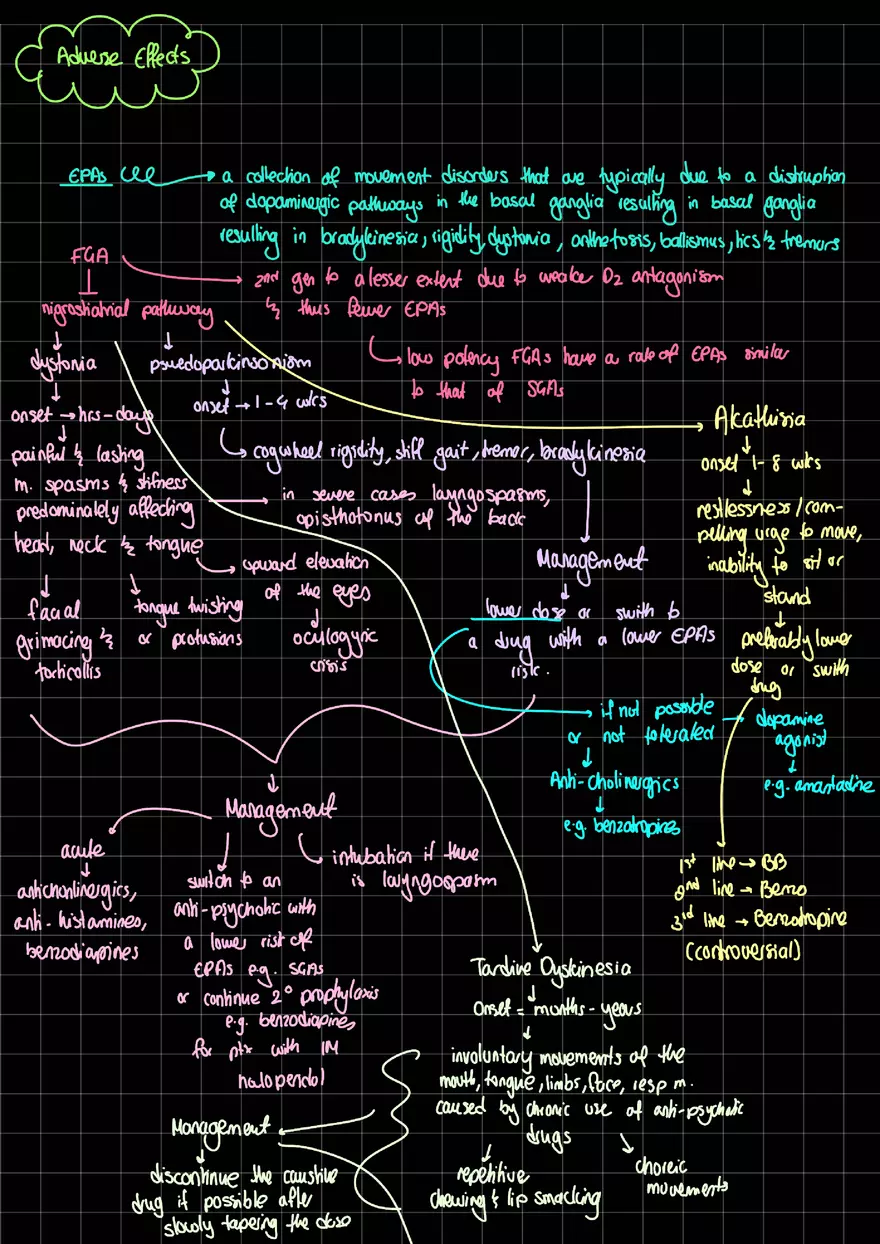 Adverse Effects
EPAs → a collection of movement disorders that are typically due to a distruption
of dopaminergic pathways in the basal ganglia resulting in basal ganglia
resulting in bradykinesia, rigidity, dystonia, anthetosis, ballismus, tics & tremors
FGA
2nd gen to a lesser extent due to weaker D2 antagonism
& thus fewer EPAs
low potency FGAs have a rate of EPAs similar
to that of SGAs
nigrostiatrial pathway
dystonia
onset → hrs-days
painful & lasting
m. spasms & stifness
predominately affecting
head, neck & tongue
in severe cases layngospasms,
opisthotonus of the back
upward elevation
of the eyes
oculogyric
crisis
facial
grimacing &
torticollis
tongue twisting
or protusions
psuedoparkinsonism
onset → 1-4 wks
cogwheel rigidity, stiff gait, tremor, bradykinesia
Management
lower dose or swith to
a drug with a lower EPAs
risk.
if not possible
or not tolerated
Anti-cholinergics
e.g. benzotropines
dopamine
agonist
e.g. amantadine
Akathisia
onset 1-8 wks
restlessness/com-
pelling urge to move,
inability to sit or
stand
preferably lower
dose or swith
drug
1st line → BB
2nd line → Benzo
3rd line → Benzotropine
(controversial)
Management
acute
antichonlinergics,
anti-histamines,
benzodiapines
switch to an
anti-psychotic with
a lower risk of
EPAs e.g. SGAs
or continue 2° prophylaxis
e.g. benzodiapines
for ptx with IM
halopendol
intubation if there
is layngospasm
Tardive Dyskinesia
Onset = months-years
involuntary movements of the
mouth, tongue, limbs, face, resp m.
caused by chronic use of anti-psychotic
drugs
repetitive
chewing & lip smacking
choreic
movements
Management
discontinue the caustive
drug if possible after
slowly tapering the dose